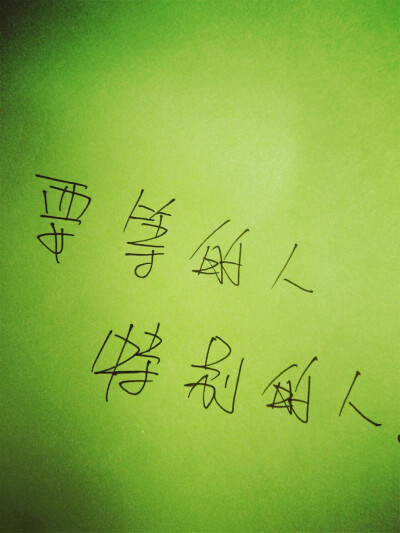 要等的人
特别的人.